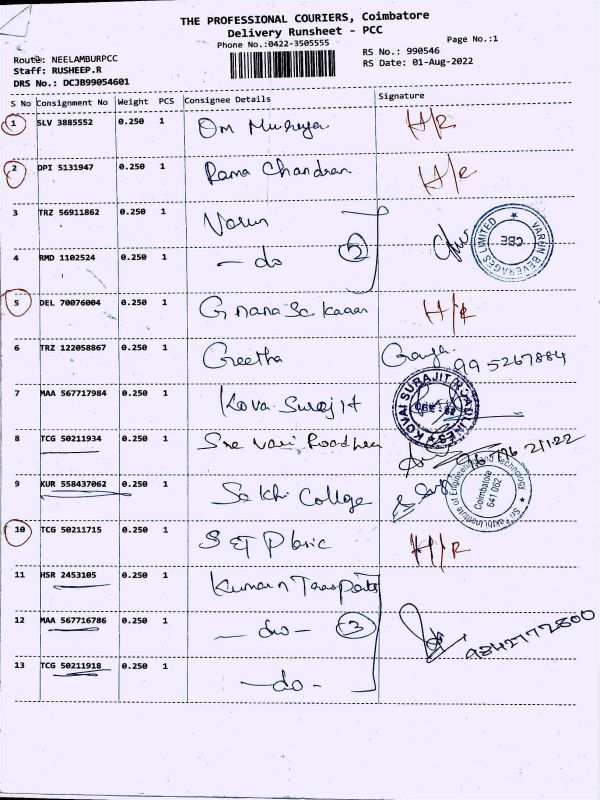 THE PROFESSIONAL COURIERS, Coimbatore
Delivery Runsheet - PCC
Phone No.:0422-3505555
Page No.:1
Route: NEELAMBURPCC
Staff: RUSHEEP.R
DRS No.: DCJB99054601
RS No.: 990546
RS Date: 01-Aug-2022
S No Consignment No Weight PCS Consignee Details Signature
1 SLV 3885552 0.250 1 Om Muruga H/R
2 DPI 5131947 0.250 1 Rama Chandran H/R
3 TRZ 56911862 0.250 1 Varun
VARUN BEVERAGES LIMITED
CBE
4 RMD 1102524 0.250 1 - do 2
5 DEL 70076004 0.250 1 H/R
6 TRZ 122058867 0.250 1 Geetha 995267884
7 MAA 567717984 0.250 1 Kovai Surajit
KOVAI SURAJIT
8 TCG 50211934 0.250 1
9 KUR 558437062 0.250 1 Sakthi College
Coimbatore
641 062
10 TCG 50211715 0.250 1 H/R
11 HSR 2453105 0.250 1 Kumaran Transports
12 MAA 567716786 0.250 1 - do - 3 9842772800
13 TCG 50211918 0.250 1 - do -